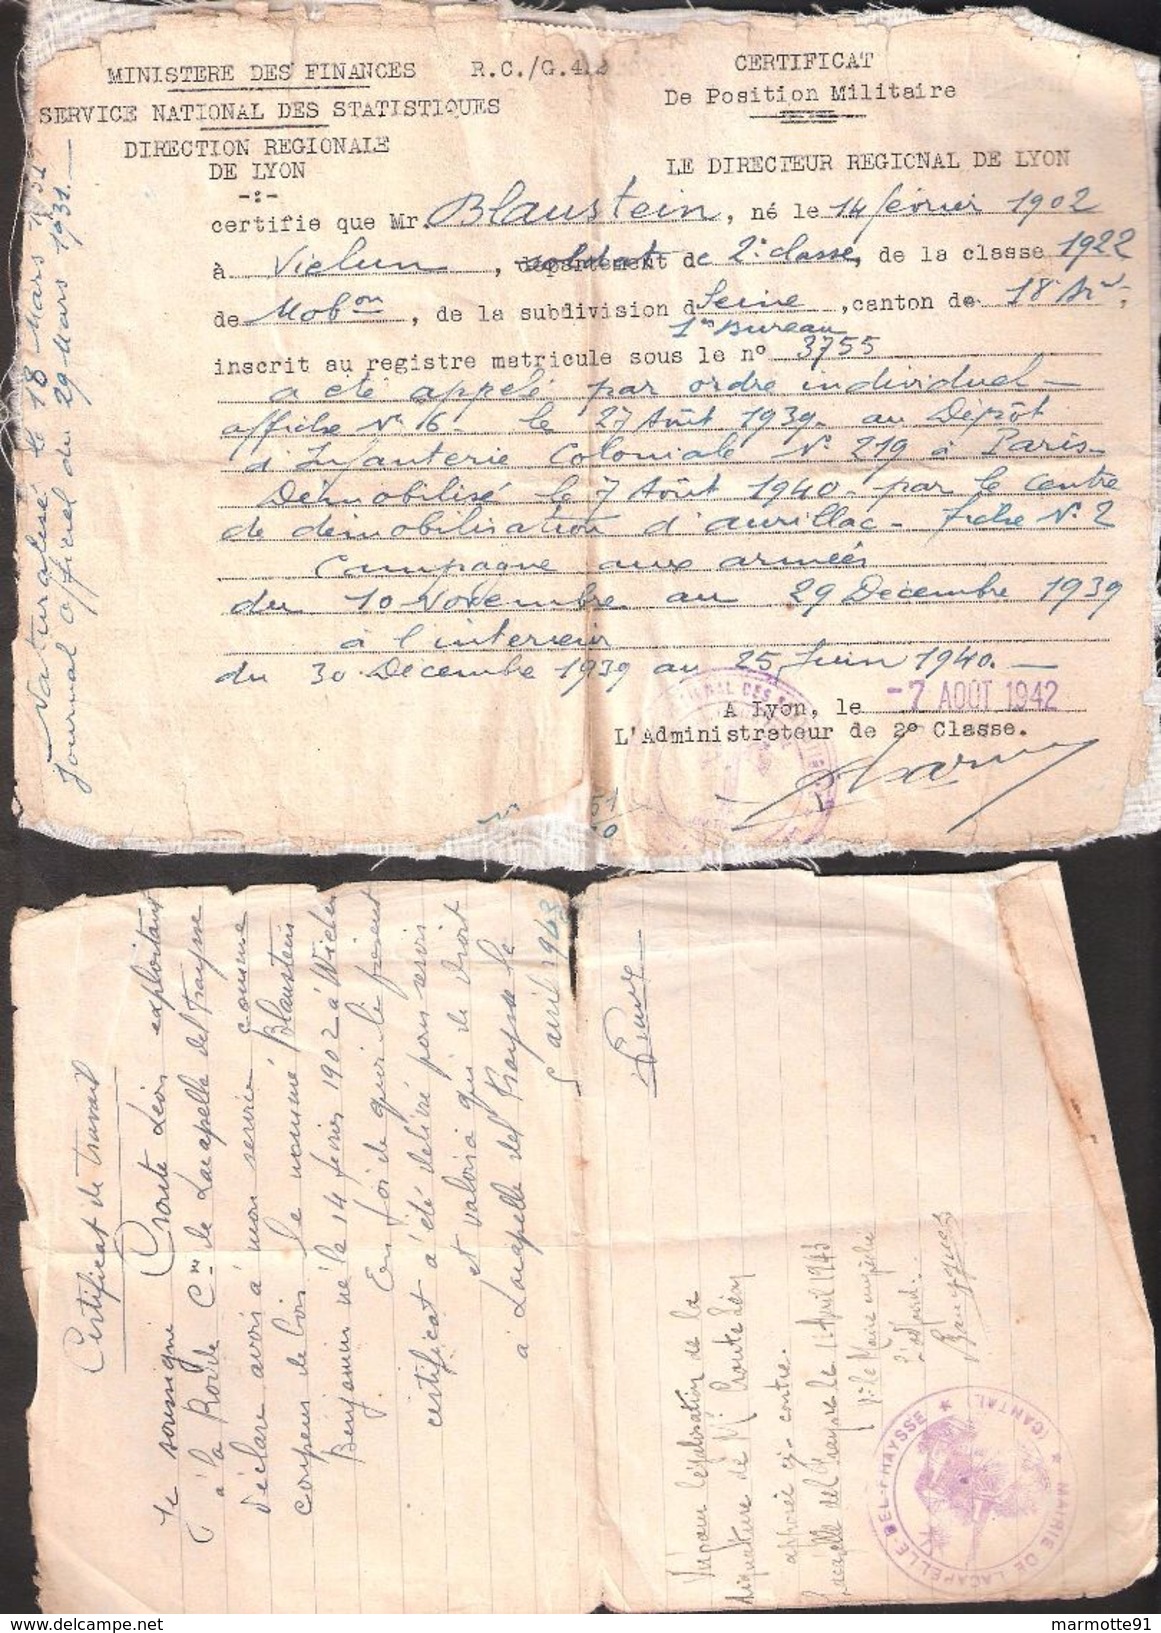 MINISTERE DES FINANCES
R.C./G.4.2
SERVICE NATIONAL DES STATISTIQUES
DIRECTION REGIONALE
DE LYON
-:-
CERTIFICAT
De Position Militaire
LE DIRECTEUR REGIONAL DE LYON
certifie que Mr. Blaustein, né le 14 février 1902
à Vielun, département soldat de 2e classe, de la classe 1922
de Mobon, de la subdivision d Seine, canton de 18 Arr,
1er Bureau
inscrit au registre matricule sous le n° 3755
a été appelé par ordre individuel
affiche N° 16. le 27 Août 1939. au Dépôt
d'Infanterie Coloniale N° 219 à Paris
Démobilisé le 7 Août 1940 - par le centre
de démobilisation d'aurillac - fiche N° 2
Campagne aux armées
du 10 Novembre au 29 Décembre 1939
à l'intérieur
du 30 Décembre 1939 au 25 Juin 1940. -
A Lyon, le -7 AOUT 1942
L'Administrateur de 2° Classe.
Naturalisé le 18 Mars 1931
Journal Officiel du 29 Mars 1931. -
Certificat de travail
Je soussigné Croute Léon exploitant
à la Cne de Lacapelle del Fraysse
déclare avoir à mon service comme
coupeur de bois le nommé Blaustein
Benjamin né le 14 février 1902 à Wielun
En foi de quoi le présent
certificat a été délivré pour servir
et valoir à qui de droit
à Lacapelle del Fraysse le
5 avril 1943
Croute
Vu pour légalisation de la
signature de Mr Croute Léon
apposée ci-contre.
Lacapelle del Fraysse le Avril 1943
Pr le Maire empêché
l'adjoint
MAIRIE DE LACAPELLE-DEL-FRAYSSE
(CANTAL)
marmotte91